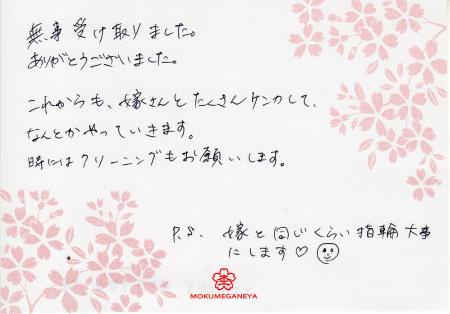 無事受け取りました。
ありがとうございました。
これからも、嫁さんとたくさんケンカして、
なんとかやっていきます。
時にはクリーニングもお願いします。
P.S. 嫁と同じくらい指輪大事
にします♡
MOKUMEGANEYA